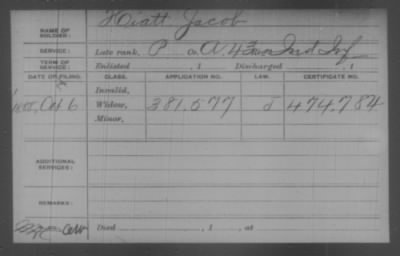 NAME OF SOLDIER: Hiatt Jacob
SERVICE: Late rank, P Co. A 43 Ind Inf
TERM OF SERVICE: Enlisted , 1 Discharged , 1
DATE OF FILING. CLASS. APPLICATION NO. LAW. CERTIFICATE NO.
Invalid,
Oct 6 Widow, 381,577 474,784
Minor,
ADDITIONAL SERVICES:
REMARKS:
Died , 1 , at